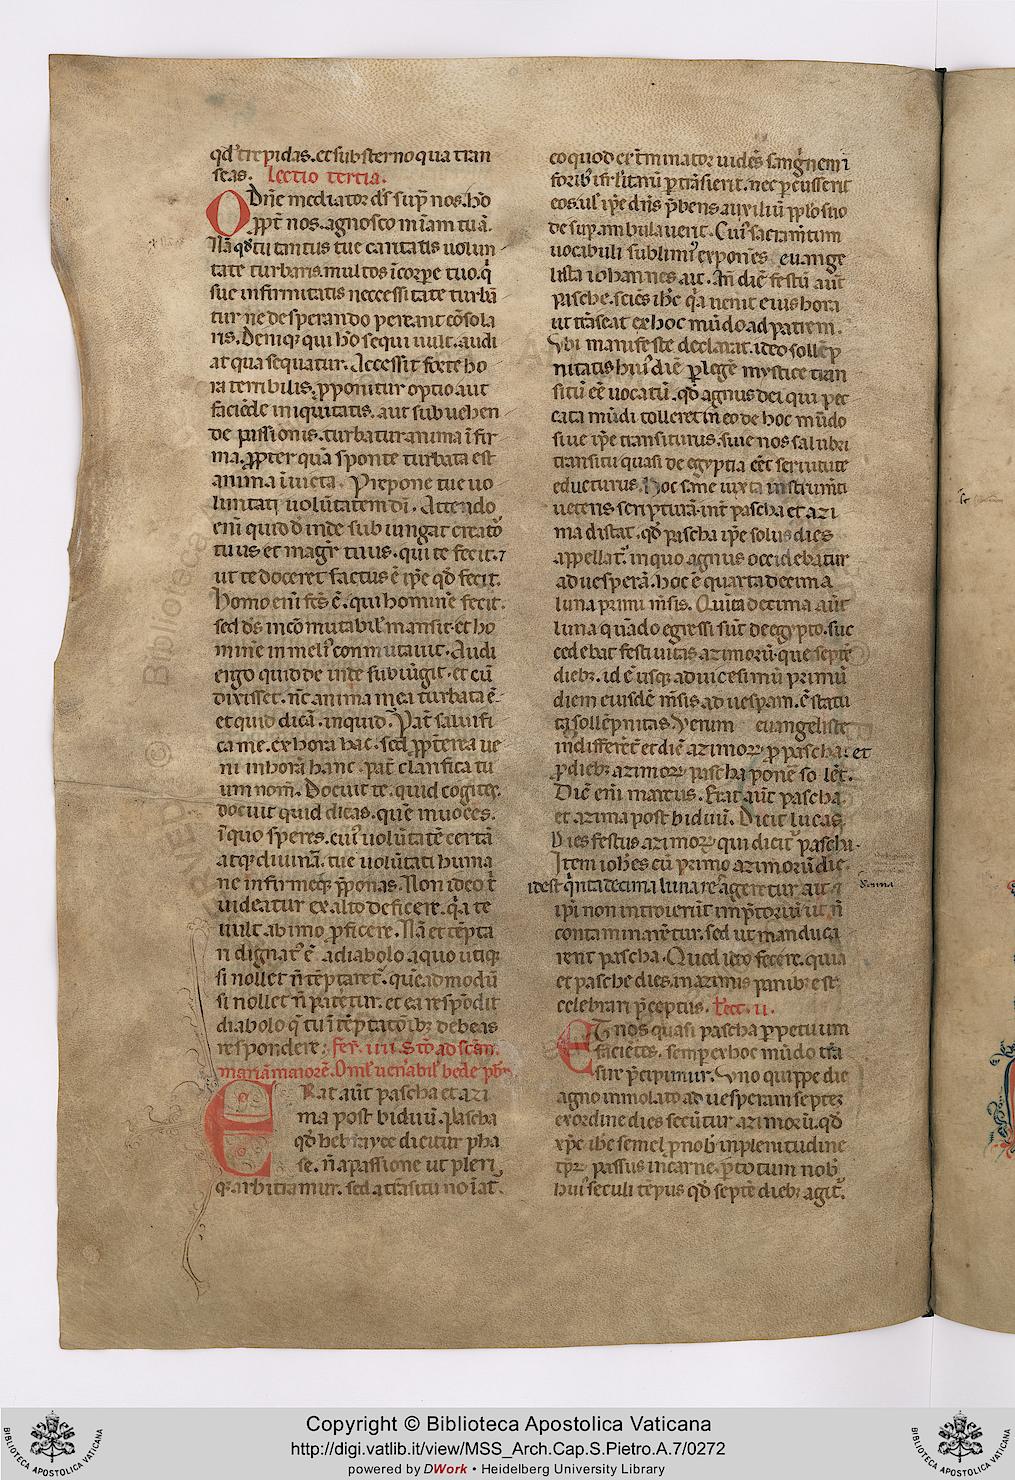 qd̄ trepidas. et substerno qua tran
seas. Lectio tertia.
O Dn̄e mediator ds̄ sup̄ nos. ho
ꝓpt̄ nos. agnosco mīam tuā.
Nā qd̄ tu tantus tue caritatis uolun
tate turbaris. multos ī corpe tuo. q̄
sue infirmitatis neccessitate turbā
tur. ne desperando pereant cōsola
ris. Deniqꝫ qui ho sequi uult. audi
at qua sequatur. Accessit forte ho
ra terribilis. ꝓponitur optio aut
faciēde iniquitatis. aut subuehen
de passionis. turbatur anima īfir
ma. ꝓpter quā sponte turbata est
anima īuicta. Prepone tue uo
luntati uolūtatem dī. Attendo
enī quid dēinde subiungat creator
tuus et magr̄ tuus. qui te fecit. ⁊
ut te doceret factus ē ip̄e qd̄ fecit.
Homo enī fcs̄ ē. qui hominē fecit.
sed ds̄ incōmutabil' mansit. et ho
minē in meli' conmutauit. Audi
ergo quid deinde subiūgit. et cū
dixisset. nc̄ anima mea turbata ē.
et quid dicā. inquid. Pat̄ saluifi
ca me. ex hora hac. sed ꝓpterea ue
ni in horā hanc. pat̄ clarifica tu
um nom̄. Docuit te. quid cogites.
docuit quid dicas. quē inuoces.
ī quo speres. cui' uolūtatē certā
atqꝫ diuinā. tue uolūtati huma
ne infirmeqꝫ p̄ponas. Non ideo t̄
uideatur ex alto deficere. q̄a te
uult ab imo ꝓficere. Nā et tēpta
ri dignat' ē a diabolo a quo utiqꝫ
si nollet n̄ tēptaret̄. quēadmodū
si nollet n̄ patētur. et ea respōdit
diabolo q̄ tu ī tēptatōibꝫ debeas
respondere. Fer. iiii. Stō ad scām
mariā maiorē. Omel' uen'abil' bede pb̄ri.
E Rat aut̄ pascha et azi
ma post biduū. Pascha
qd̄ hebrayce dicitur pha
se. n̄ a passione ut pleri
qꝫ arbitramur. sed a trāsitu noīat̄.
eo quod exterminator uidēs sanguinem ī
forib' isrl'itarū ꝑtrāsierit. nec ꝑcusserit
eos. ul' ip̄e dn̄s p̄bens auxiliū pplo suo
desup ambulauerit. Cui' sacramtum
uocabuli sublimi' exponēs euange
lista iohannes ait. An̄ diē festū aut̄
pasche. sciēs ihc̄ q̄a uenit eius hora
ut trāseat ex hoc mūdo ad patrem.
Vbi manifeste declarat. ideo sollēp
nitatis hui' diē ꝑ legē mystice tran
sitū eē uocatū. qd̄ agnus dei qui pec
cata mūdi tolleret in eo de hoc mūdo
siue ip̄e transiturus. siue nos salubri
transitu quasi de egyptia eēt seruitute
educturus. Hoc sane iuxta instrumti
ueteris scripturā. int̄ pascha et azi
ma distat. qd̄ pascha ip̄e solus dies
appellat'. in quo agnus occidebatur
ad uesperā. hoc ē quartadecima
luna primi m̄sis. Quīta decima aut̄
luna quādo egressi sūt de egypto. suc
cedebat festiuitas azimorū. que septē
diebꝫ. id ē usqꝫ ad uicesimū primū
diem eiusdē m̄sis ad uespam. ē statu
ta sollēpnitas. Verum euangeliste
indifferēt̄ et diē azimorꝫ pro pascha. et
ꝓ diebꝫ azimorꝫ pascha ponē̄ solēt.
Dic̄ enī marcus. Erat aut̄ pascha.
et azima post biduū. Dicit lucas.
Dies festus azimorꝫ qui dicit' pascha.
Item ioh̄es cū primo azimorū die.
idest q̄nta decima luna res ageretur. ait.
ip̄i non introierūt in p̄toriū ut n̄
contaminarētur. sed ut manduca
rent pascha. Quod ideo fecere. quia
et pasche dies. in azimis panibꝫ est
celebrari p̄ceptus. Lect. ii.
Et nos quasi pascha ꝑpetuum
faciētes. semper ex hoc mūdo trā
sire p̄cipimur. Vno quippe die
agno inmolato ad uesperam septez
ex ordine dies secūtur azimorū. qd̄
xp̄c ihc̄ semel ꝓ nob' in plenitudine
tp̄rꝫ passus in carne. ꝑ totum nob'
hui' seculi tēpus qd̄ septē diebꝫ agit'.
Copyright © Biblioteca Apostolica Vaticana
http://digi.vatlib.it/view/MSS_Arch.Cap.S.Pietro.A.7/0272
powered by DWork • Heidelberg University Library